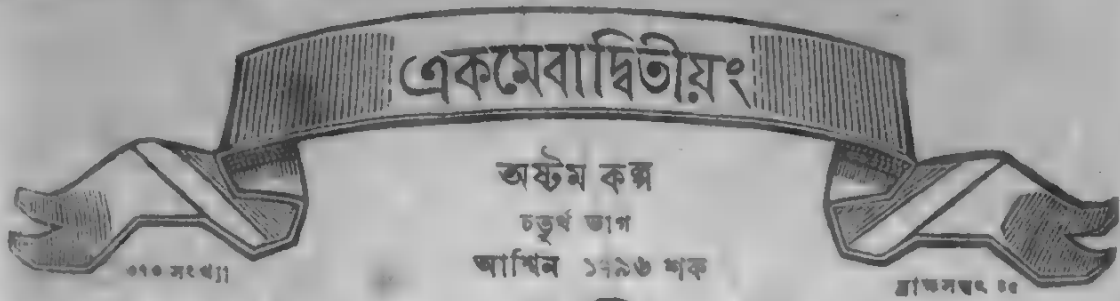 একমেবাদ্বিতীয়ং
অষ্টম কল্প
চতুর্থ ভাগ
আশ্বিন ১৭৯৬ শক
সংখ্যা
ব্রাহ্মসম্বৎ ৪৫